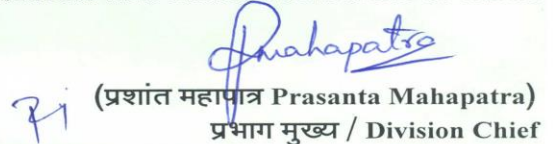 Pmahapatra
(प्रशांत महापात्र Prasanta Mahapatra)
प्रभाग मुख्य / Division Chief